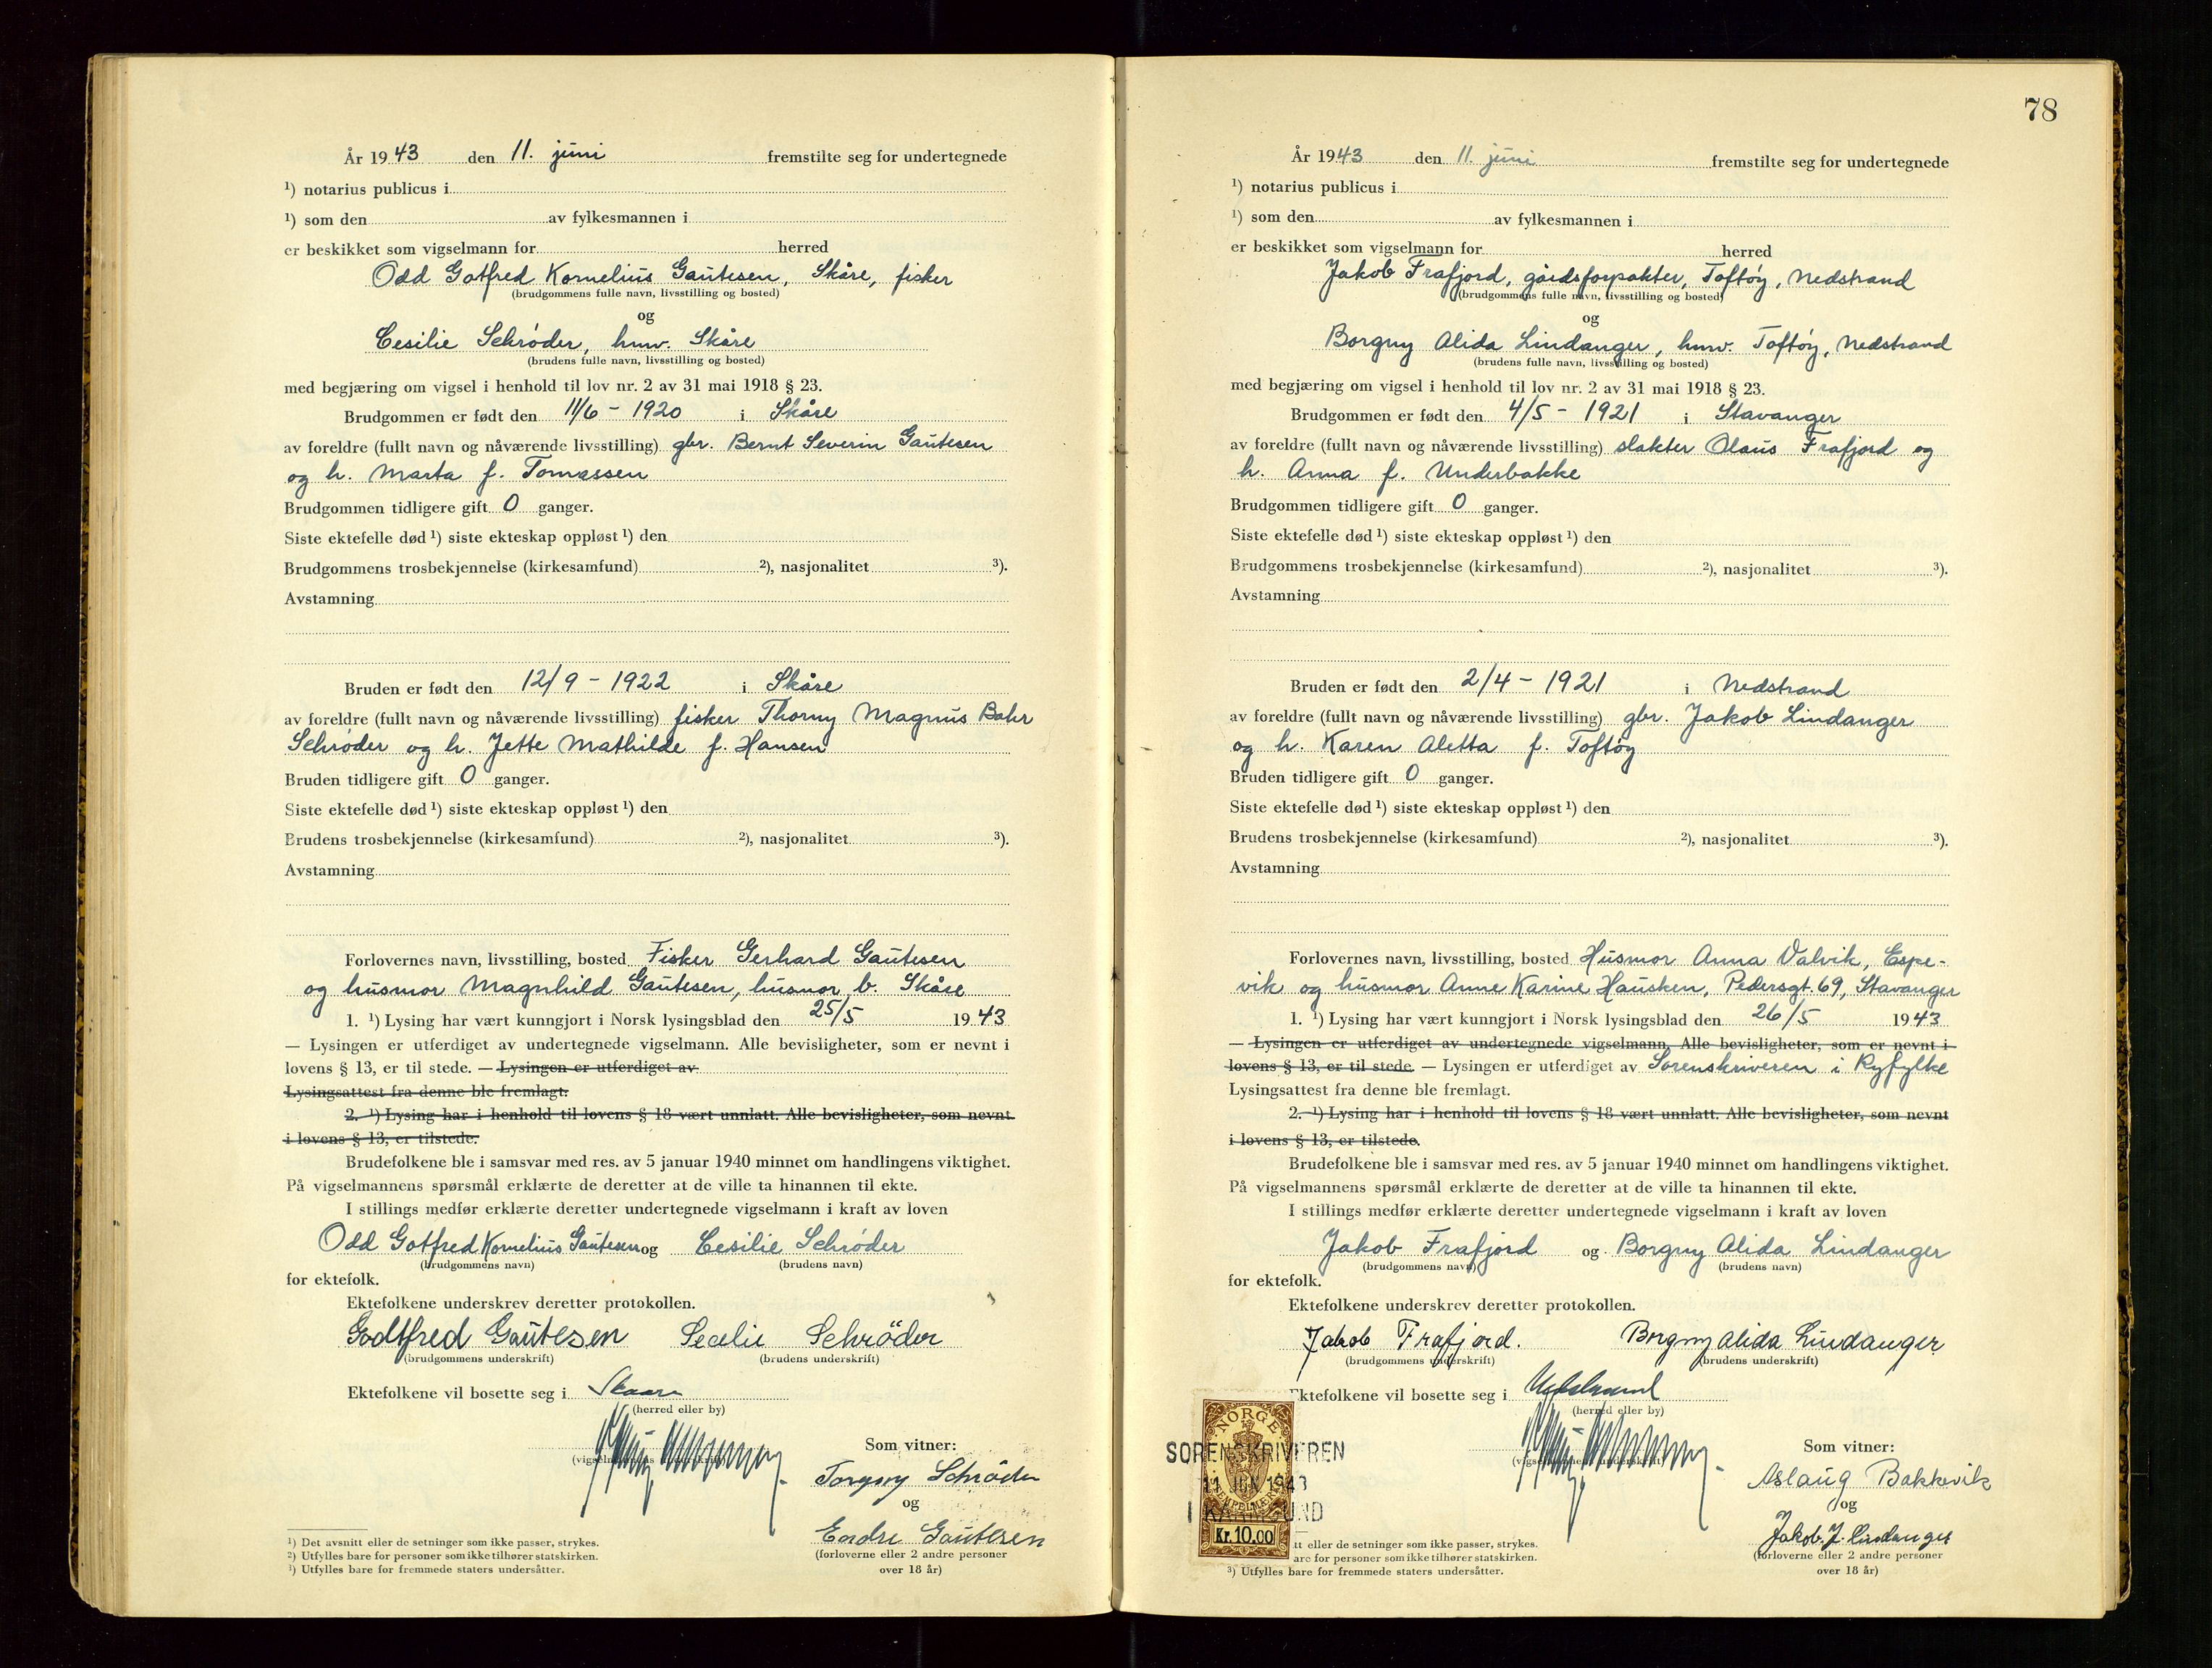 År 1943 den 11. juni fremstilte seg for undertegnede
¹) notarius publicus i
¹) som den av fylkesmannen i
er beskikket som vigselmann for herred
Odd Gotfred Kornelius Gautesen, Skåre, fisker
(brudgommens fulle navn, livsstilling og bosted)
og
Cesilie Schrøder, hmv. Skåre
(brudens fulle navn, livsstilling og bosted)
med begjæring om vigsel i henhold til lov nr. 2 av 31 mai 1918 § 23.
Brudgommen er født den 11/6 - 1920 i Skåre
av foreldre (fullt navn og nåværende livsstilling) gbr. Bernt Severin Gautesen
og h. Marta f. Tomassen
Brudgommen tidligere gift 0 ganger.
Siste ektefelle død ¹) siste ekteskap oppløst ¹) den
Brudgommens trosbekjennelse (kirkesamfund) ²), nasjonalitet ³).
Avstamning
Bruden er født den 12/9 - 1922 i Skåre
av foreldre (fullt navn og nåværende livsstilling) fisker Thorny Magnus Bahr
Schrøder og h. Jette Mathilde f. Hansen
Bruden tidligere gift 0 ganger.
Siste ektefelle død ¹) siste ekteskap oppløst ¹) den
Brudens trosbekjennelse (kirkesamfund) ²), nasjonalitet ³).
Avstamning
Forlovernes navn, livsstilling, bosted Fisker Gerhard Gautesen
og husmor Magnhild Gautesen, husmor, b. Skåre
1. ¹) Lysing har vært kunngjort i Norsk lysingsblad den 25/5 1943
— Lysingen er utferdiget av undertegnede vigselmann. Alle bevisligheter, som er nevnt i
lovens § 13, er til stede. — Lysingen er utferdiget av
Lysingsattest fra denne ble fremlagt.
2. ¹) Lysing har i henhold til lovens § 18 vært unnlatt. Alle bevisligheter, som nevnt
i lovens § 13, er tilstede.
Brudefolkene ble i samsvar med res. av 5 januar 1940 minnet om handlingens viktighet.
På vigselmannens spørsmål erklærte de deretter at de ville ta hinannen til ekte.
I stillings medfør erklærte deretter undertegnede vigselmann i kraft av loven
Odd Gotfred Kornelius Gautesen og Cesilie Schrøder
(brudgommens navn) (brudens navn)
for ektefolk.
Ektefolkene underskrev deretter protokollen.
Godtfred Gautesen Secelie Schrøder
(brudgommens underskrift) (brudens underskrift)
Ektefolkene vil bosette seg i Skaare
(herred eller by)
Som vitner:
Torgny Schrøder
og
Endre Gautesen
(forloverne eller 2 andre personer
over 18 år)
¹) Det avsnitt eller de setninger som ikke passer, strykes.
²) Utfylles bare for personer som ikke tilhører statskirken.
³) Utfylles bare for fremmede staters undersåtter.
78
År 1943 den 11. juni fremstilte seg for undertegnede
¹) notarius publicus i
¹) som den av fylkesmannen i
er beskikket som vigselmann for herred
Jakob Frafjord, gårdsforpakter, Toftøy, Nedstrand
(brudgommens fulle navn, livsstilling og bosted)
og
Borgny Alida Lindanger, hmv. Toftøy, Nedstrand
(brudens fulle navn, livsstilling og bosted)
med begjæring om vigsel i henhold til lov nr. 2 av 31 mai 1918 § 23.
Brudgommen er født den 4/5 - 1921 i Stavanger
av foreldre (fullt navn og nåværende livsstilling) slakter Olaus Frafjord og
h. Anna f. Underbakke
Brudgommen tidligere gift 0 ganger.
Siste ektefelle død ¹) siste ekteskap oppløst ¹) den
Brudgommens trosbekjennelse (kirkesamfund) ²), nasjonalitet ³).
Avstamning
Bruden er født den 2/4 - 1921 i Nedstrand
av foreldre (fullt navn og nåværende livsstilling) gbr. Jakob Lindanger
og h. Karen Aletta f. Toftøy
Bruden tidligere gift 0 ganger.
Siste ektefelle død ¹) siste ekteskap oppløst ¹) den
Brudens trosbekjennelse (kirkesamfund) ²), nasjonalitet ³).
Avstamning
Forlovernes navn, livsstilling, bosted Husmor Anna Valvik, Espe-
vik og husmor Anne Karine Hausken, Pedersgt. 69, Stavanger
1. ¹) Lysing har vært kunngjort i Norsk lysingsblad den 26/5 1943
— Lysingen er utferdiget av undertegnede vigselmann. Alle bevisligheter, som er nevnt i
lovens § 13, er til stede. — Lysingen er utferdiget av Sorenskriveren i Ryfylke
Lysingsattest fra denne ble fremlagt.
2. ¹) Lysing har i henhold til lovens § 18 vært unnlatt. Alle bevisligheter, som nevnt
i lovens § 13, er tilstede.
Brudefolkene ble i samsvar med res. av 5 januar 1940 minnet om handlingens viktighet.
På vigselmannens spørsmål erklærte de deretter at de ville ta hinannen til ekte.
I stillings medfør erklærte deretter undertegnede vigselmann i kraft av loven
Jakob Frafjord og Borgny Alida Lindanger
(brudgommens navn) (brudens navn)
for ektefolk.
Ektefolkene underskrev deretter protokollen.
Jakob Frafjord. Borgny Alida Lindanger
(brudgommens underskrift) (brudens underskrift)
Ektefolkene vil bosette seg i Nedstrand
(herred eller by)
NORGE
SORENSKRIVEREN
11 JUN 1943
I KARMSUND
Kr. 10.00
Som vitner:
Aslaug Bakkevik
og
Jakob. J. Lindanger
(forloverne eller 2 andre personer
over 18 år)
tt eller de setninger som ikke passer, strykes.
are for personer som ikke tilhører statskirken.
³) Utfylles bare for fremmede staters undersåtter.